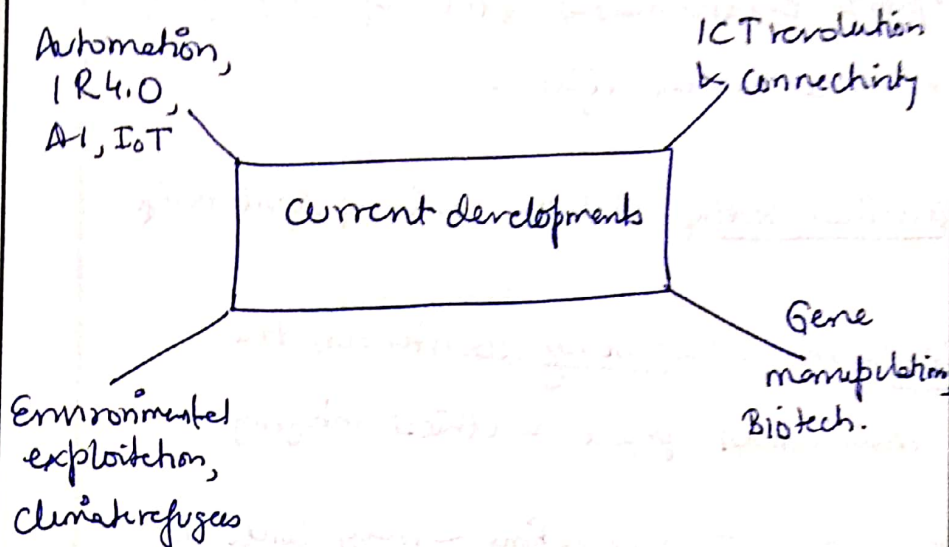 Automation,
IR4.0,
AI, IoT
ICT revolution
& Connectivity
Current developments
Environmental
exploitation,
Climate refugees
Gene
manipulation,
Biotech.